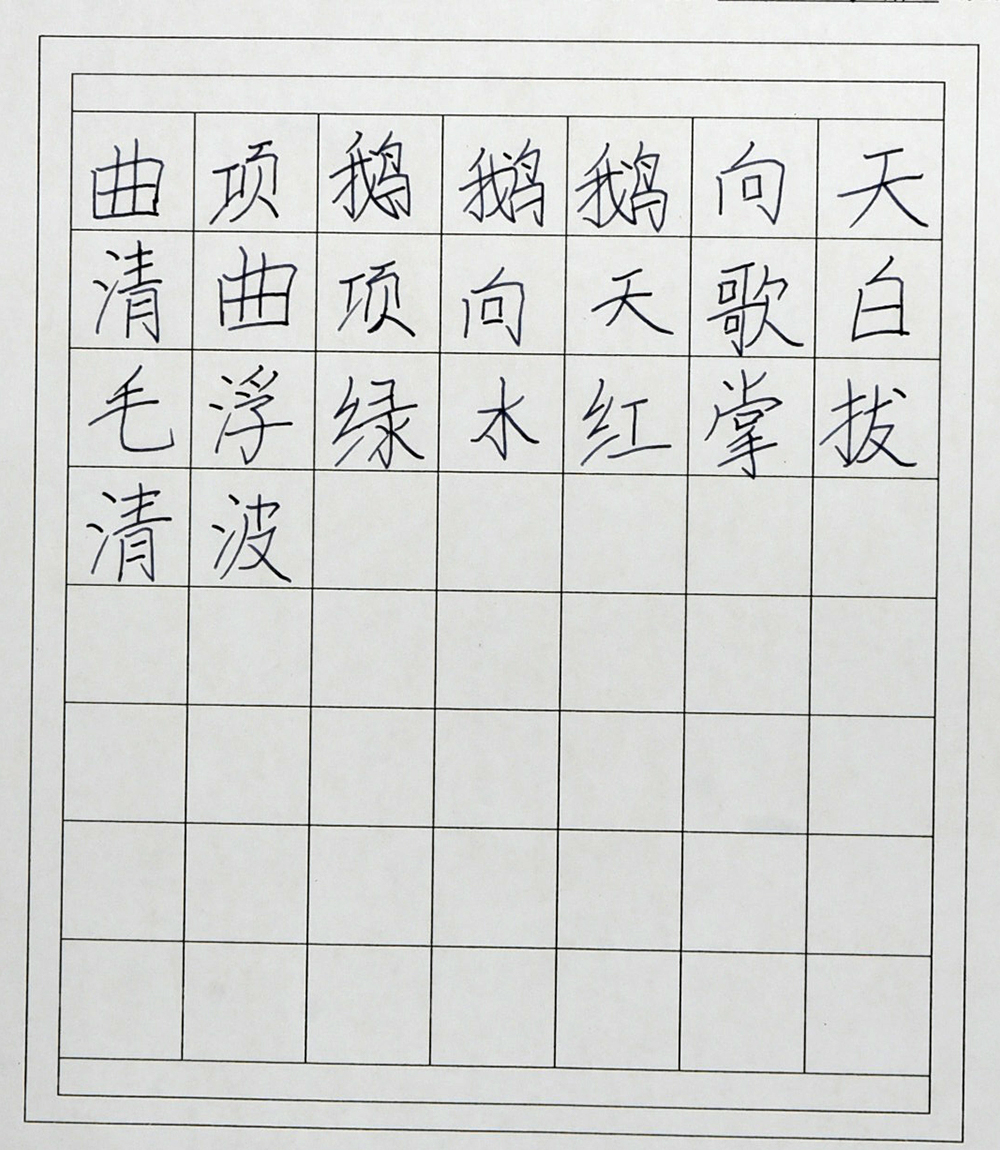 曲项鹅鹅鹅向天
清曲项向天歌白
毛浮绿水红掌拔
清波